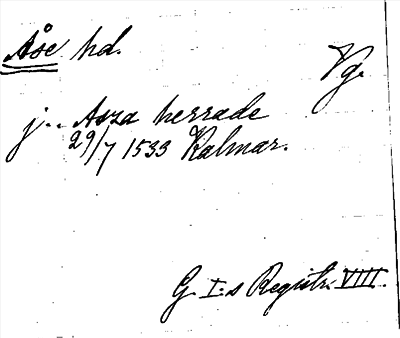 Åse hd.
Vg.
j.. Asza herrade
29/7 1533 Kalmar.
G. I:s Registr. VIII.